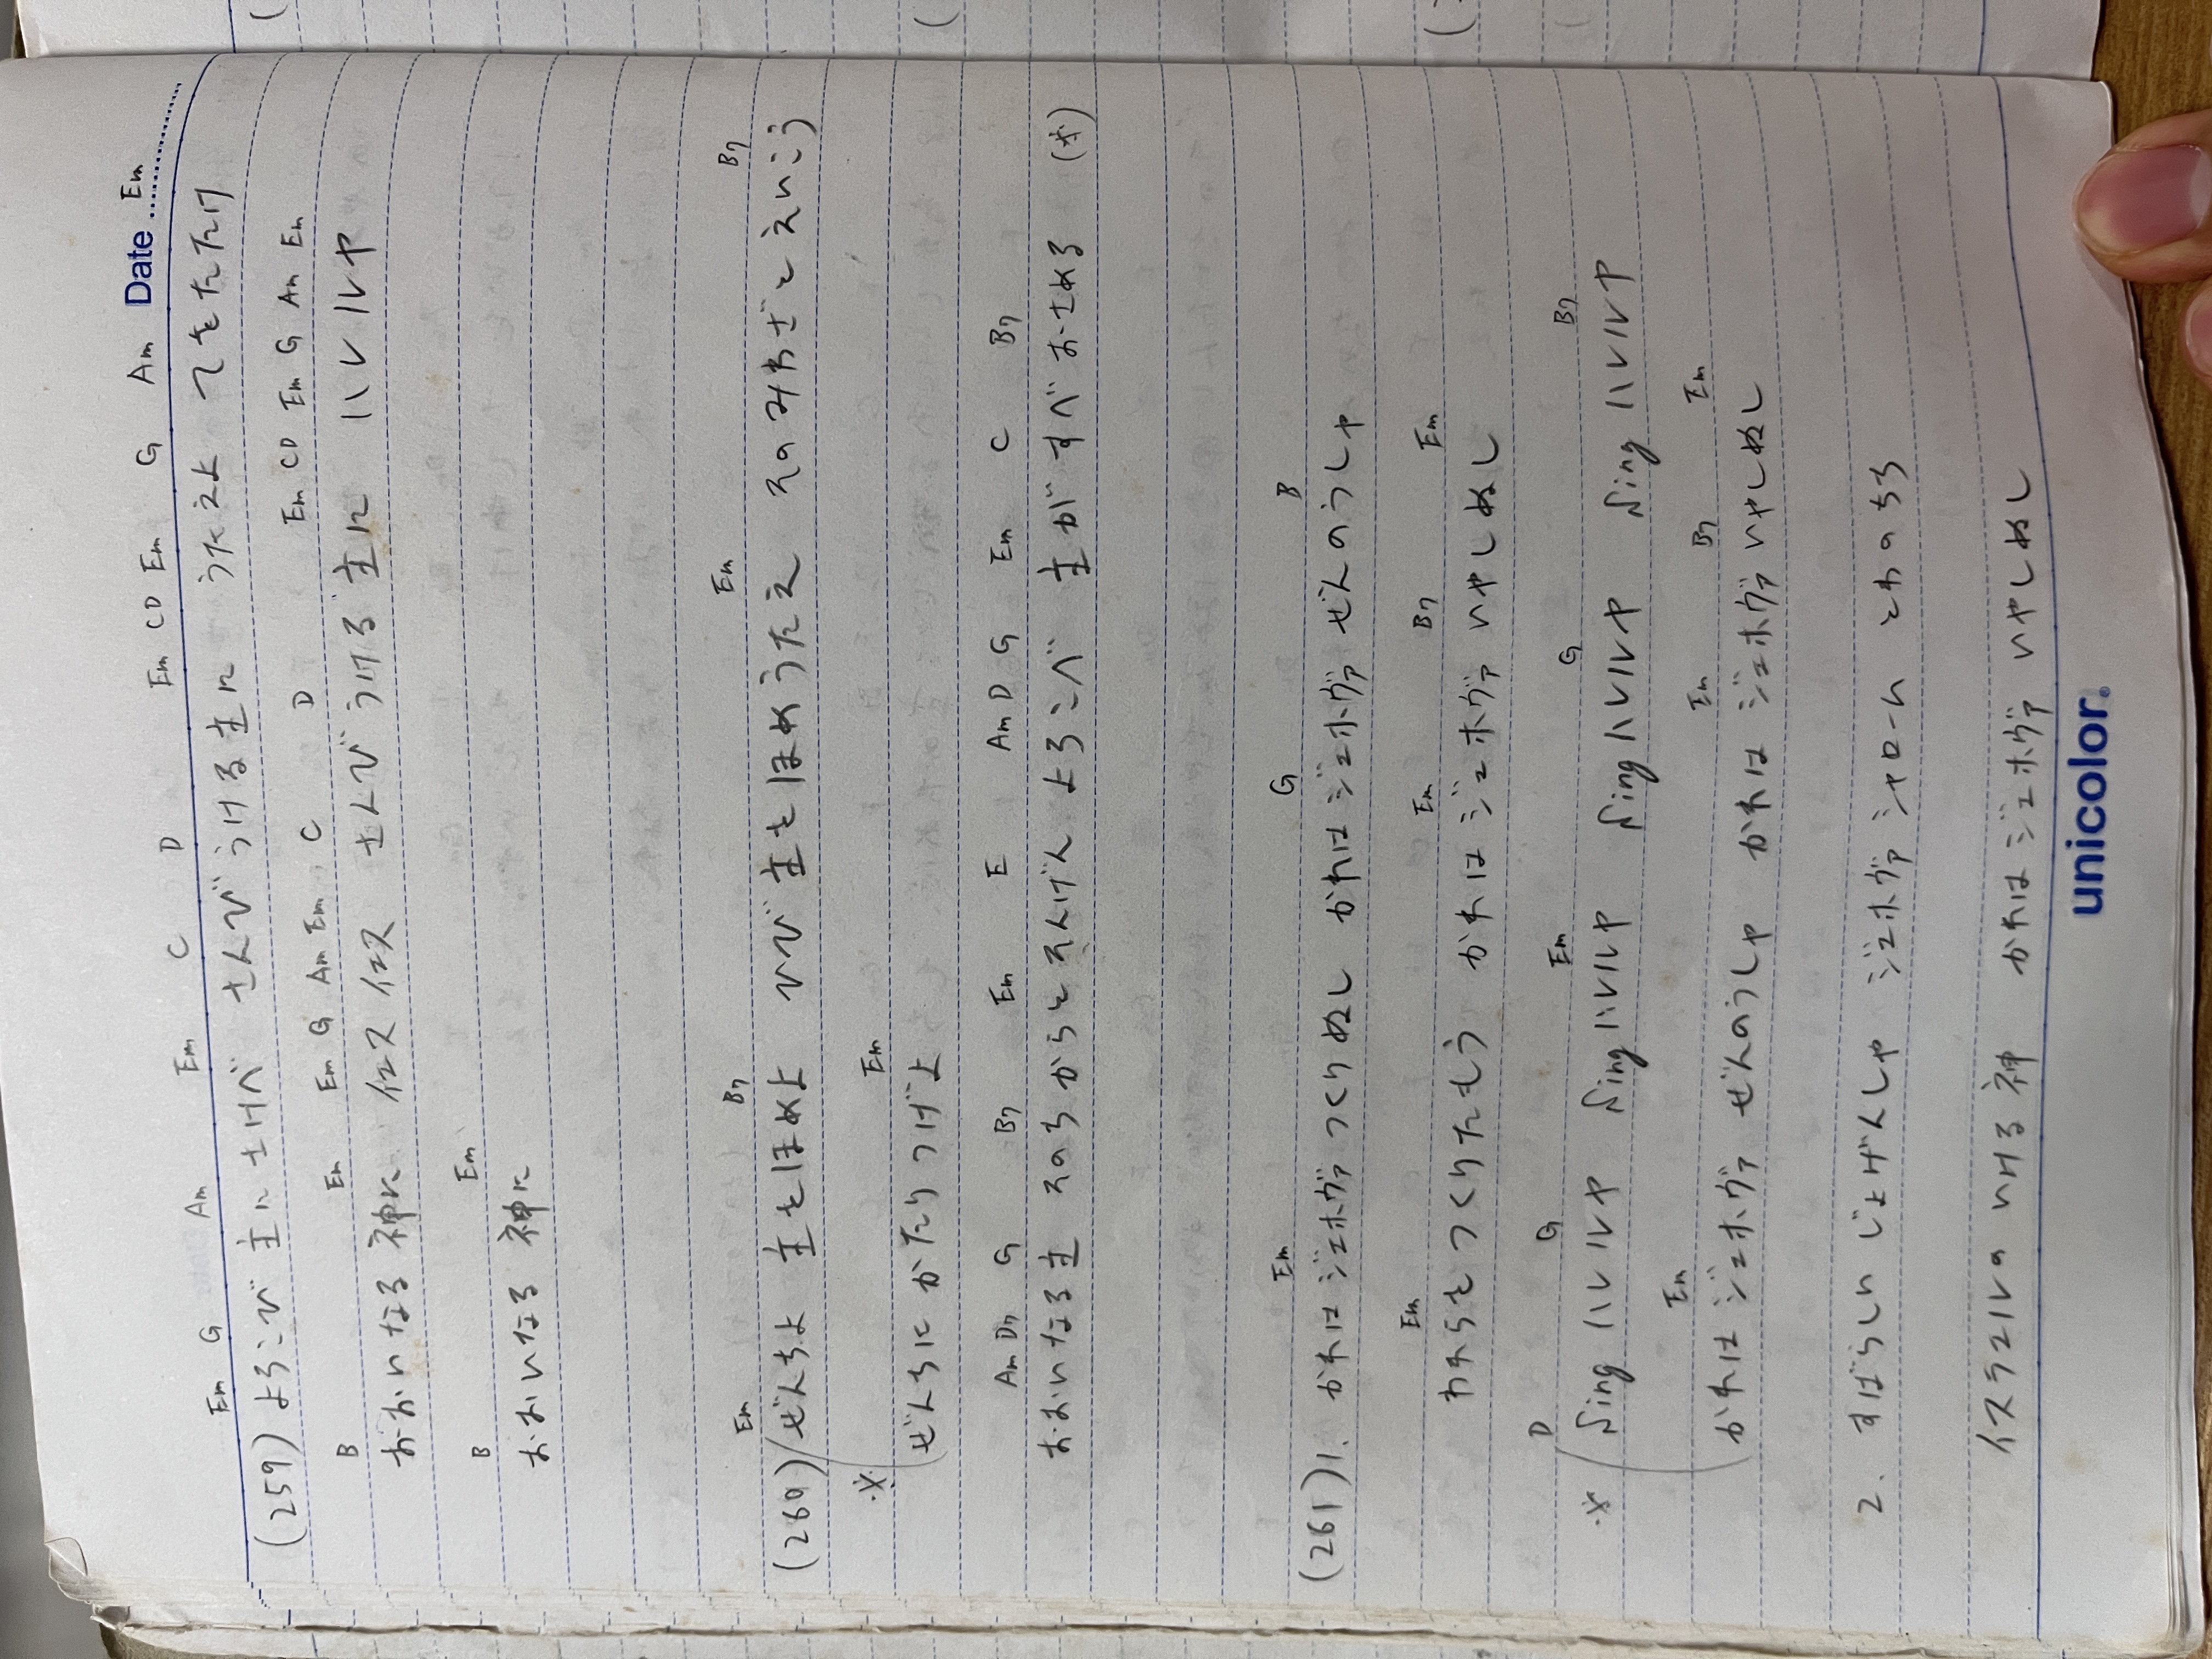 Date
Em G Am Em C D Em CD Em G Am Em
(259) よろこび 主に さけべ さんび うける 主に うたえよ てをたたけ
B Em Em G Am Em C D Em CD Em G Am Em
おおいなる 神に イエス イエス さんび うける 主に ハレルヤ
B Em
おおいなる 神に
Em B7 Em B7
(260) ぜんちよ 主をほめよ いび 主をほめうたえ そのみわざとえいこう
※ Em
ぜんちに かたりつげよ
Am D7 G B7 Em E Am D G Em C B7
おおいなる主 そのちからとそんげん よろこべ 主が すべおさめる (※)
Em G B
(261) 1. かれは ジェホヴァ つくりぬし かれは ジェホヴァ ぜんのうしゃ
Em Em B7 Em
われらを つくりたもう かれは ジェホヴァ いやしぬし
D G Em G B7
※ Sing ハレルヤ Sing ハレルヤ Sing ハレルヤ Sing ハレルヤ
Em Em B7 Em
かれは ジェホヴァ ぜんのうしゃ かれは ジェホヴァ いやしぬし
2. すばらしい じょげんしゃ ジェホヴァ シャローム とわのちち
イスラエルの いける 神 かれは ジェホヴァ いやしぬし
unicolor